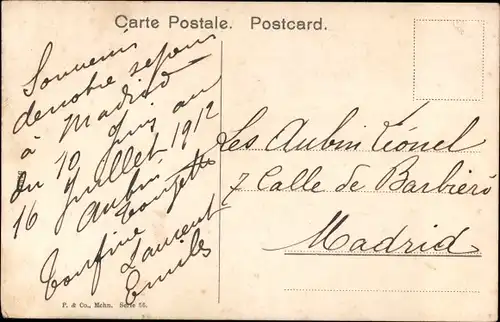 Carte Postale. Postcard.
Souvenir
de notre sejour
à Madrid
du 10 Juin au
16 Juillet 1912
Aubin
Laurent
Emile
Les Aubin Léonel
7 Calle de Barbieri
Madrid
P. & Co., Mchn. Serie 56.